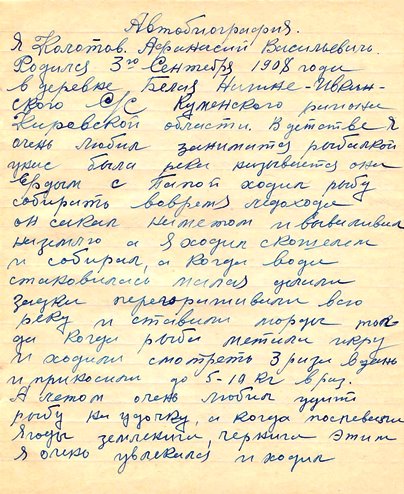 Автобиография.
Я Колотов Афанасий Васильевич.
Родился 3го Сентября 1908 года
в деревке Белая Нижне-Ивкин-
ского С/С Куменского района
Кировской области. В детстве я
очень любил заниматся рыбалкой
у нас была река называется она
с Папой ходил рыбу
собирать вовремя ледохода
он сакал наметом и вываливал
на землю а я ходил с кошелем
и собирал, а когда вода
становилась малая делали
заезки перегораживали всю
реку и ставили морды тог-
да когда рыба метали икру
и ходили смотреть 3 раза в день
и приносили до 5-10 кг в раз.
А летом очень любил удить
рыбу на удочку, а когда поспевали
Ягоды земленига, черника этим
я очено увлекался и ходил